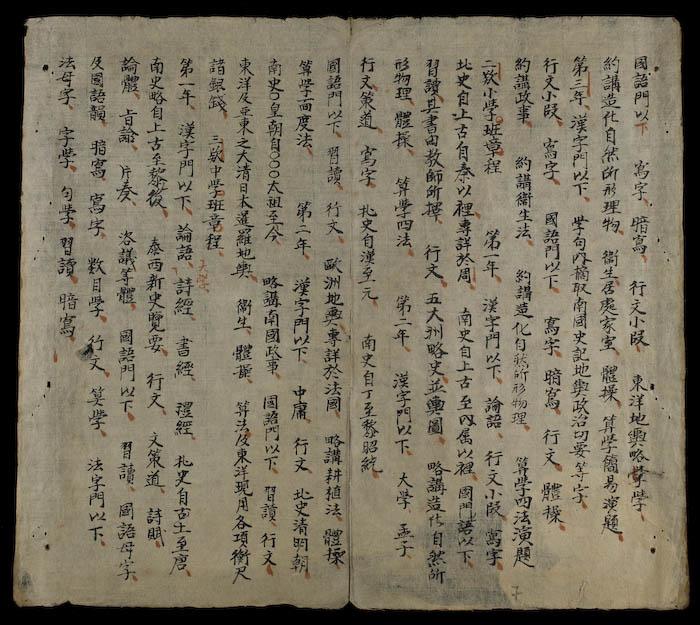 國語門以下 寫字、暗寫、 行文小段、 東洋地輿略學學、
約講造化自然所形理物 衛生居處家室 體操、算學簡易演題、
第三年、漢字門以下、 學句內摘取南國史記地輿政治切要等字、
行文小段、 寫字、 國語門以下、 寫字、暗寫、 行文、 體操、
約講政事、 約講衛生法、 約講造化自然所形物理、 算學四法演題
二欵小學班章程、 第一年、漢字門以下、論語、行文小段、寫字、
北史自上古自秦以裡專詳於周、 南史自上古至內屬以裡、國門語以下、
習讀其書由教師所擇、 行文、五大州略史並輿圖、 略講造化自然所
形物理、 體操、 算學四法、 第二年、 漢字門以下、 大學、孟子、
行文策道、 寫字、北史自漢至元、 南史自丁至黎昭統、
國語門以下、習讀、行文、 歐洲地輿專詳於法國、 略講耕植法、 體操
算學面度法、 第三年、 漢字門以下、 中庸、 行文、 北史清明朝
南史〇皇朝自〇〇〇太祖至今、 略講南國政事、 國語門以下、習讀、行文、
東洋及亞東之大清日本暹羅地輿、 衛生、體操、 算法及東洋現用各項衡尺
諸銀錢、 三欵中學班章程、 大學
第一年、漢字門以下、論語、詩經、書經、禮經、北史自古土至唐、
南史略自上古至黎後、 泰西新史覽要、 行文、 文策道、 詩賦、
論體、旨諭、片奏、 咨議等體、 國語門以下、 習讀、國語母字
及國語韻、暗寫、寫字、數目學、行文、算學、法字門以下、
法母字、字學、句學、習讀、暗寫、